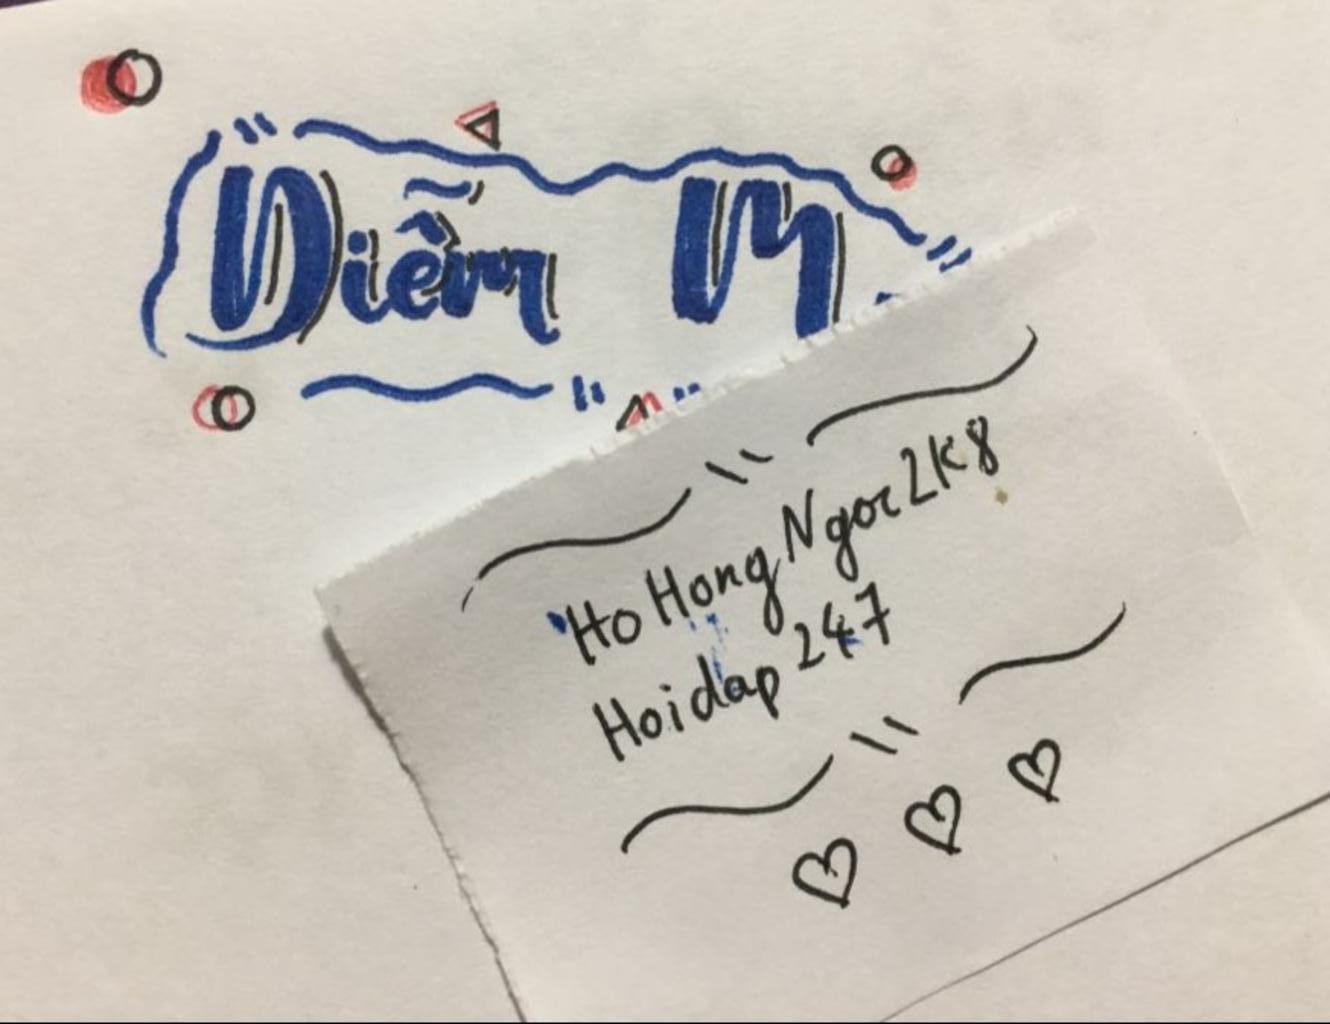 Diễm M
HoHongNgoc2K8
Hoidap247